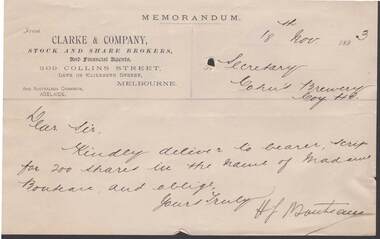 MEMORANDUM.
From
CLARKE & COMPANY,
STOCK AND SHARE BROKERS,
And Financial Agents,
369 COLLINS STREET,
LATE OF ELIZABETH STREET,
MELBOURNE.
AND AUSTRALIAN CHAMBERS,
ADELAIDE.
18th Nov. 1893
Secretary
Cohn's Brewery
Coy
Dear Sir.
Kindly deliver to bearer, scrip
for 200 shares in the name of Madame
and oblige
Yours truly